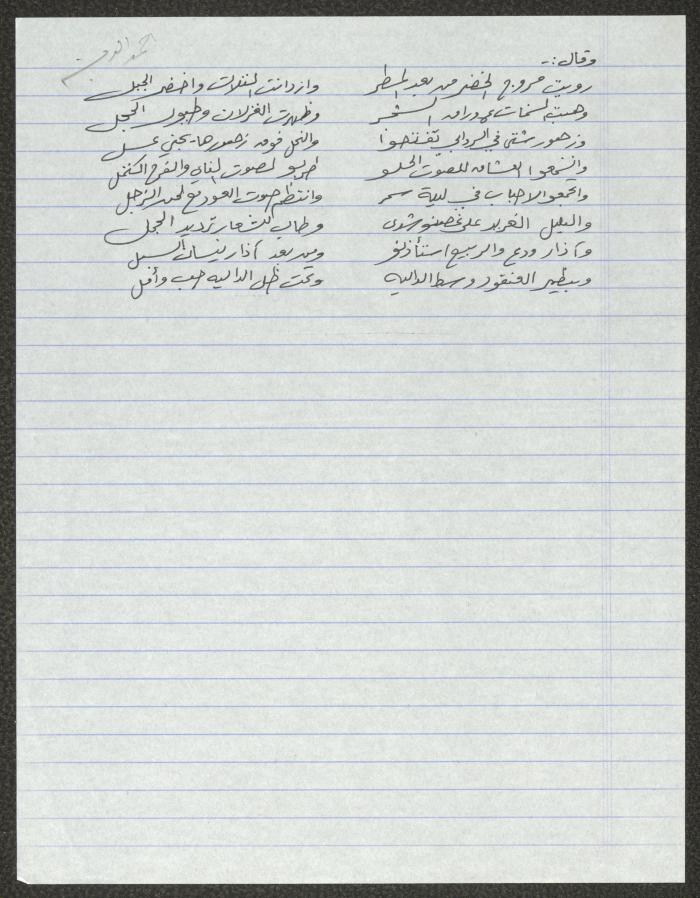 وقال :-
رويت مروج الخضر من بعد المطر وازدانت التلات واخضر الجبل
وهبت نسمات عم وراق الشجر وظهرت الغزلان وطيور الحجل
وزهور شتى في الروابي تفتحوا والنحل فوق زهورها يجني عسل
واتجمعوا العشاق للصوت الحلو طربو لصوت الناي والفرح اكتمل
واتجمعو الاحباب في ليلة سمر وانتظم صوت العود مع لحن الزجل
والبلبل الغريد على غصنو شدى وطاب للشعار ترديد الجمل
وآذار ودع والربيع استأذنو ومن بعد آذار نيسان
العنقود وسط الداليه وتحت ظل الداليه حب وأمل